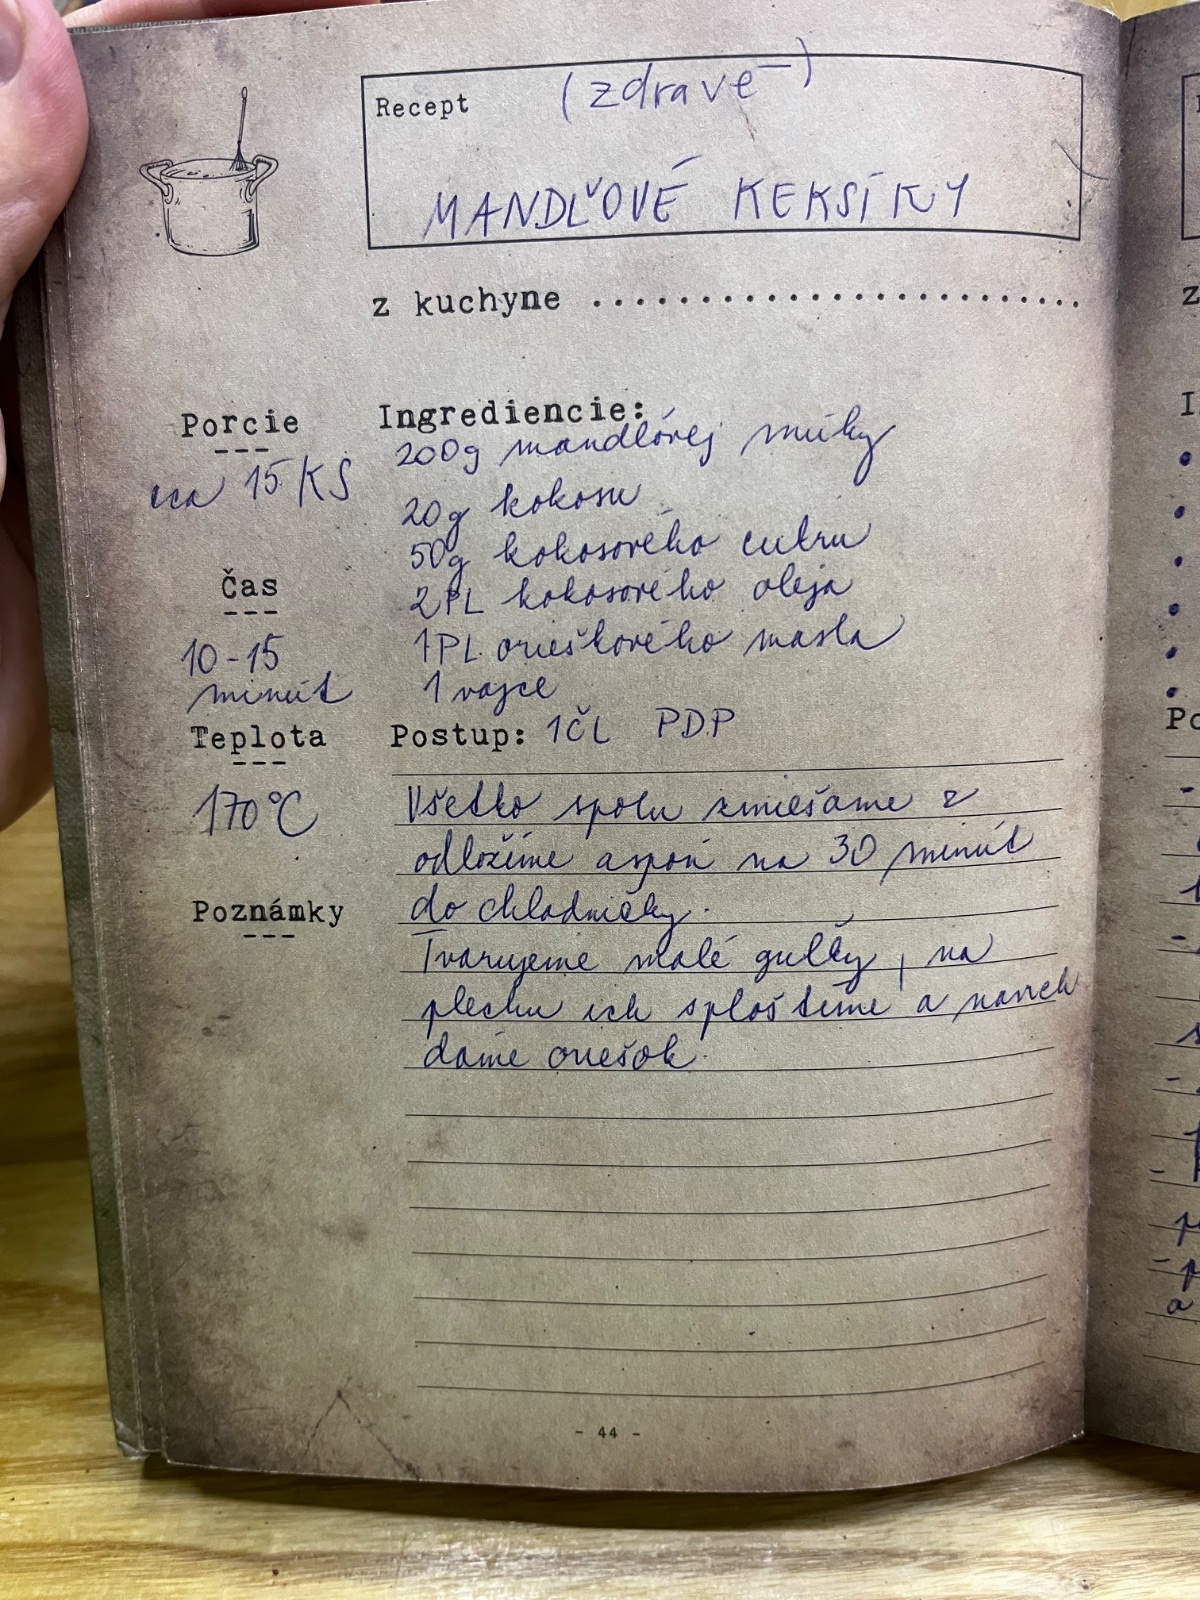 Recept (zdravé)
MANDĽOVÉ KEKSÍKY
z kuchyne ..................................
Porcie
cca 15 KS
Čas
10-15
minút
Teplota
170°C
Poznámky
Ingrediencie:
200g mandlóvej múky
20g kokosu
50g kokosového cukru
2PL kokosového oleja
1PL orieškového masla
1 vajce
Postup: 1ČL PDP
Všetko spolu zmiešame a
odložíme aspoň na 30 minút
do chladničky.
Tvarujeme malé guľky, na
plechu ich sploštíme a navrch
dáme oriešok.
- 44 -